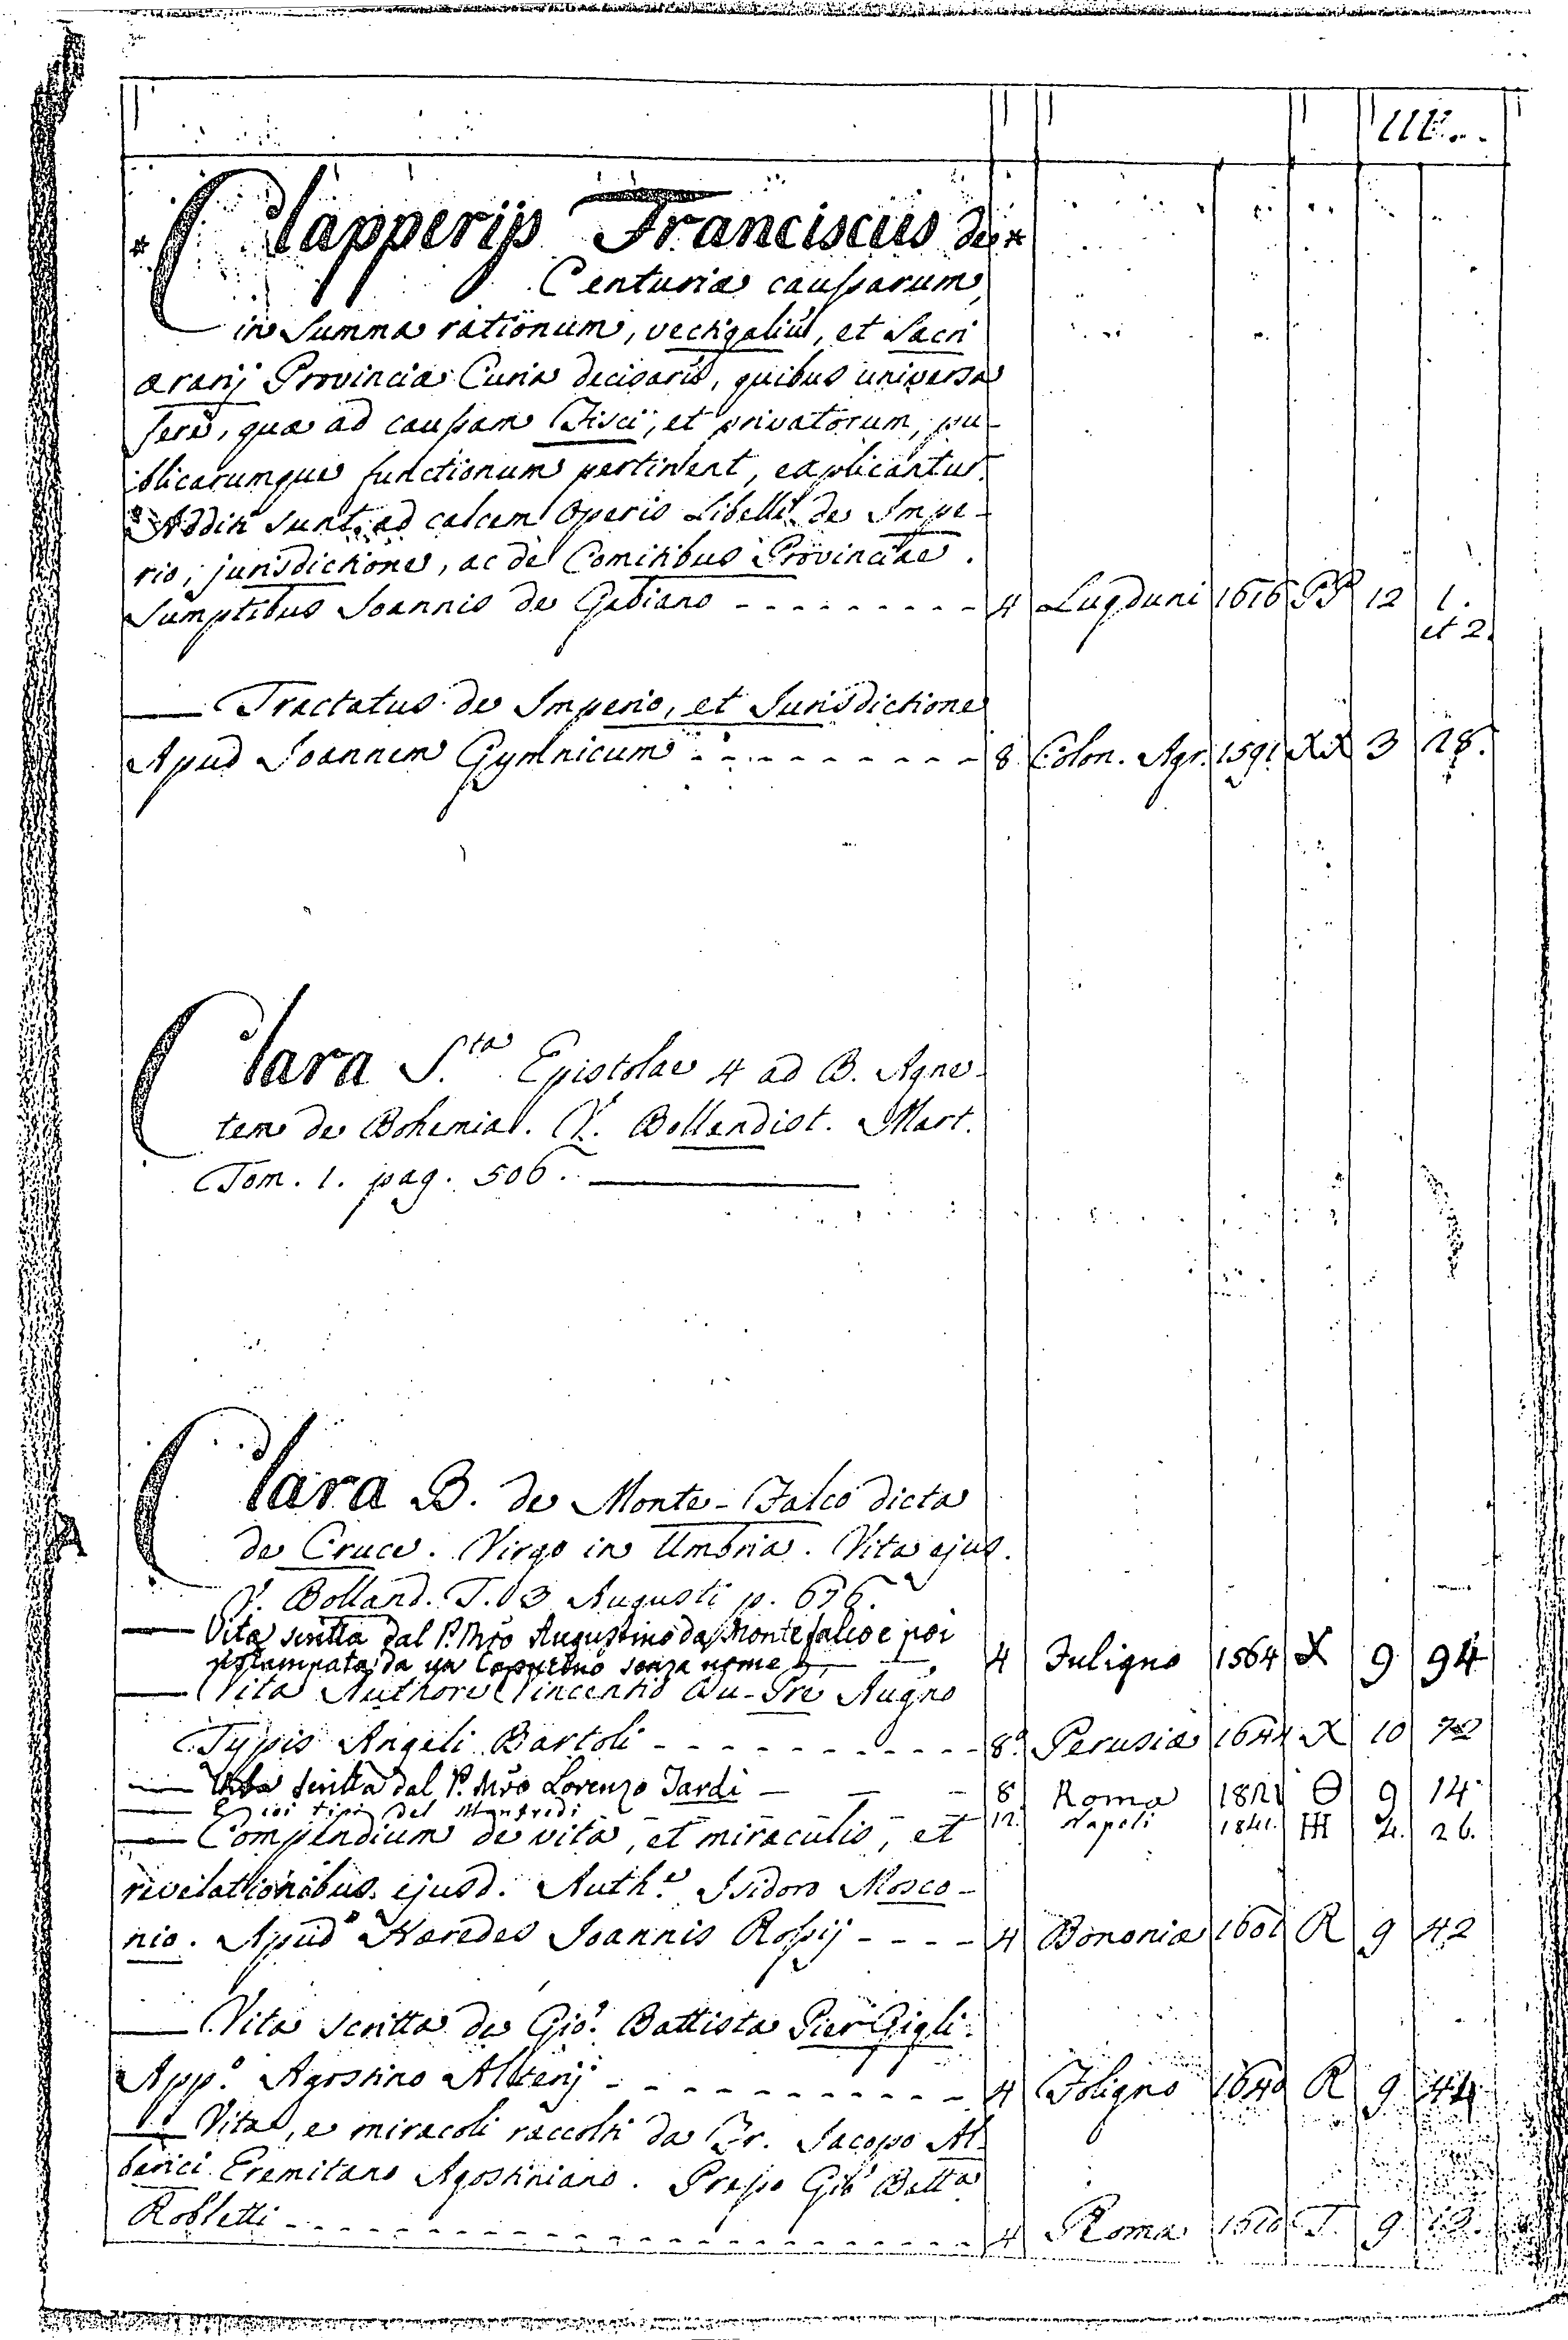 * Clapperijs Franciscus de *
Centuriæ caussarum,
in Summa rationum, vectigaliũ, et Sacri
ærarij Provinciæ Curia decisarũ, quibus universa
fere, quæ ad caussam Fisci, et privatorum, pu-
blicarumque functionum pertinent, explicantur.
Additi sunt ad calcem Operis Libelli de Impe-
rio, jurisdictione, ac de Comitibus Provinciae.
Sumptibus Joannis de Gabiano - - - - - - - - - 4 Lugduni 1616 PP 12 1.
et 2.
— Tractatus de Imperio, et Jurisdictione
Apud Joannem Gymnicum - - - - - - - - - 8 Colon. Agr. 1591 XX 3 28.
Clara S.ta Epistolae 4 ad B. Agne-
tem de Bohemia. V. Bollandist. Mart.
Tom. 1. pag. 506. —
Clara B. de Monte-Falco dicta
de Cruce. Virgo in Umbria. Vita ejus.
V. Bolland. T. 3 Augusti p. 676.
— Vita scritta dal P. Mro Augustino da Montefalco e poi
ristampata da un Cappucino senza nome — — 4 Fuligno 1564 X 9 94
— Vita Authore Vincentio Du-Pre Augno
Typis Angeli Bartoli - - - - - - - - - - - 8º Perusiæ 1644 X 10 72
— Vita scritta dal P. Mro Lorenzo Tardi — — — 8 Roma 1821 Θ 9 14
— E ivi tipi del Manfredi 12. Napoli 1841. HH 4. 26.
— Compendium de vita, et miraculis, et
rivelationibus ejusd. Auth.e Isidoro Mosco-
nio. Apud Hæredes Joannis Rossij - - - - 4 Bononiæ 1601 R 9 42
— Vita scritta da Gio: Battista Pier Gigli.
App.o Agostino Alterij - - - - - - - - - - - 4 Foligno 1640 R 9 44
— Vita, e miracoli raccolti da Fr. Jacopo Al-
berici Eremitano Agostiniano. Presso Gio Batta
Robletti - - - - - - - - - - - - - - - - - - - 4 Roma 1610 T. 9